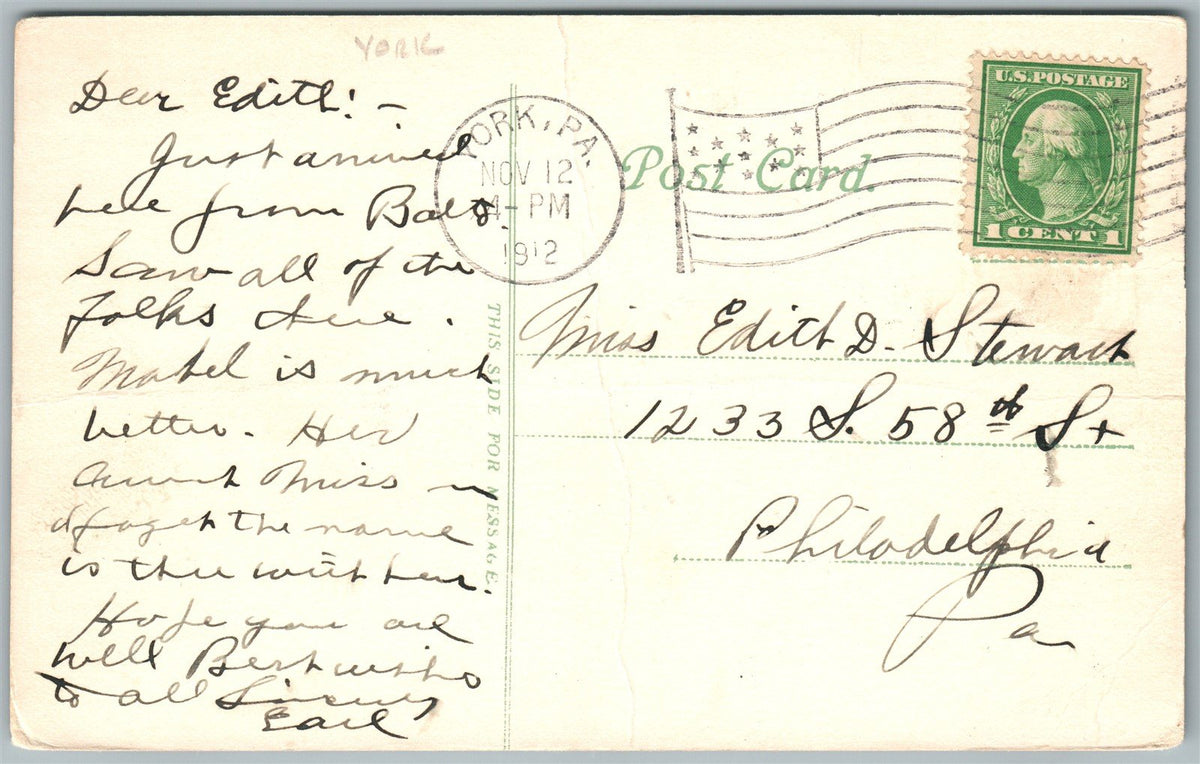 YORK
Dear Edith:-
Just arrived
here from Balto.
Saw all of the
folks there.
Mabel is much
better. Her
Aunt Miss
I forget the name
is there with her.
Hope you are
well Best wishes
to all Sincerely
Earl
THIS SIDE FOR MESSAGE.
YORK, PA.
NOV 12
4-PM
1912
Post Card.
U.S. POSTAGE
1 CENT 1
Miss Edith D. Stewart
1233 S. 58th St
Philadelphia
Pa